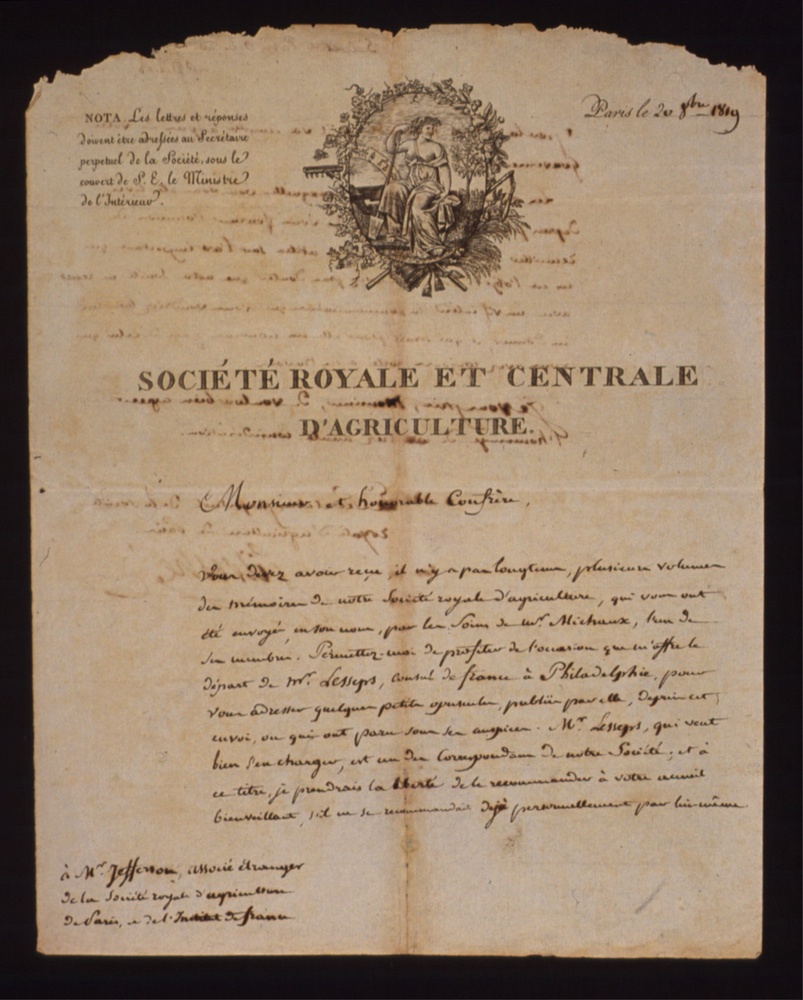 NOTA. Les lettres et réponses
doivent être adressées au Secrétaire
perpétuel de la Société, sous le
couvert de S. E. le Ministre
de l'Intérieur.
Paris le 20 8bre 1819
SOCIÉTÉ ROYALE ET CENTRALE
D'AGRICULTURE.
Monsieur et honorable Confrère,
Vous devez avoir reçu, il n'y a pas longtems, plusieurs volumes
des mémoires de notre Société royale d'agriculture, qui vous ont
été envoyés, en son nom, par les soins de Mr. Michaux, l'un de
ses membres. Permettez-moi de profiter de l'occasion que m'offre le
départ de Mr. Lesseps, consul de france à Philadelphie, pour
vous adresser quelques petits opuscules, publiés par elle, depuis cet
envoi, ou qui ont paru sous ses auspices. Mr. Lesseps, qui veut
bien s'en charger, est un des Correspondans de notre Société; et à
ce titre, je prendrais la liberté de le recommander à votre accueil
bienveillant, s'il ne se recommandait déjà personnellement par lui-même
à Mr. Jefferson, associé étranger
de la Société royale d'agriculture
de Paris, et de l'Institut de france